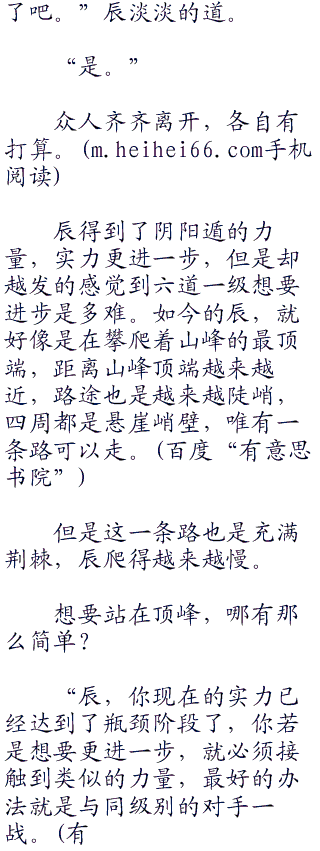 了吧。”辰淡淡的道。
“是。”
众人齐齐离开，各自有
打算。(m.heihei66.com手机
阅读)
辰得到了阴阳遁的力
量，实力更进一步，但是却
越发的感觉到六道一级想要
进步是多难。如今的辰，就
好像是在攀爬着山峰的最顶
端，距离山峰顶端越来越
近，路途也是越来越陡峭，
四周都是悬崖峭壁，唯有一
条路可以走。(百度“有意思
书院”)
但是这一条路也是充满
荆棘，辰爬得越来越慢。
想要站在顶峰，哪有那
么简单？
“辰，你现在的实力已
经达到了瓶颈阶段了，你若
是想要更进一步，就必须接
触到类似的力量，最好的办
法就是与同级别的对手一
战。(有